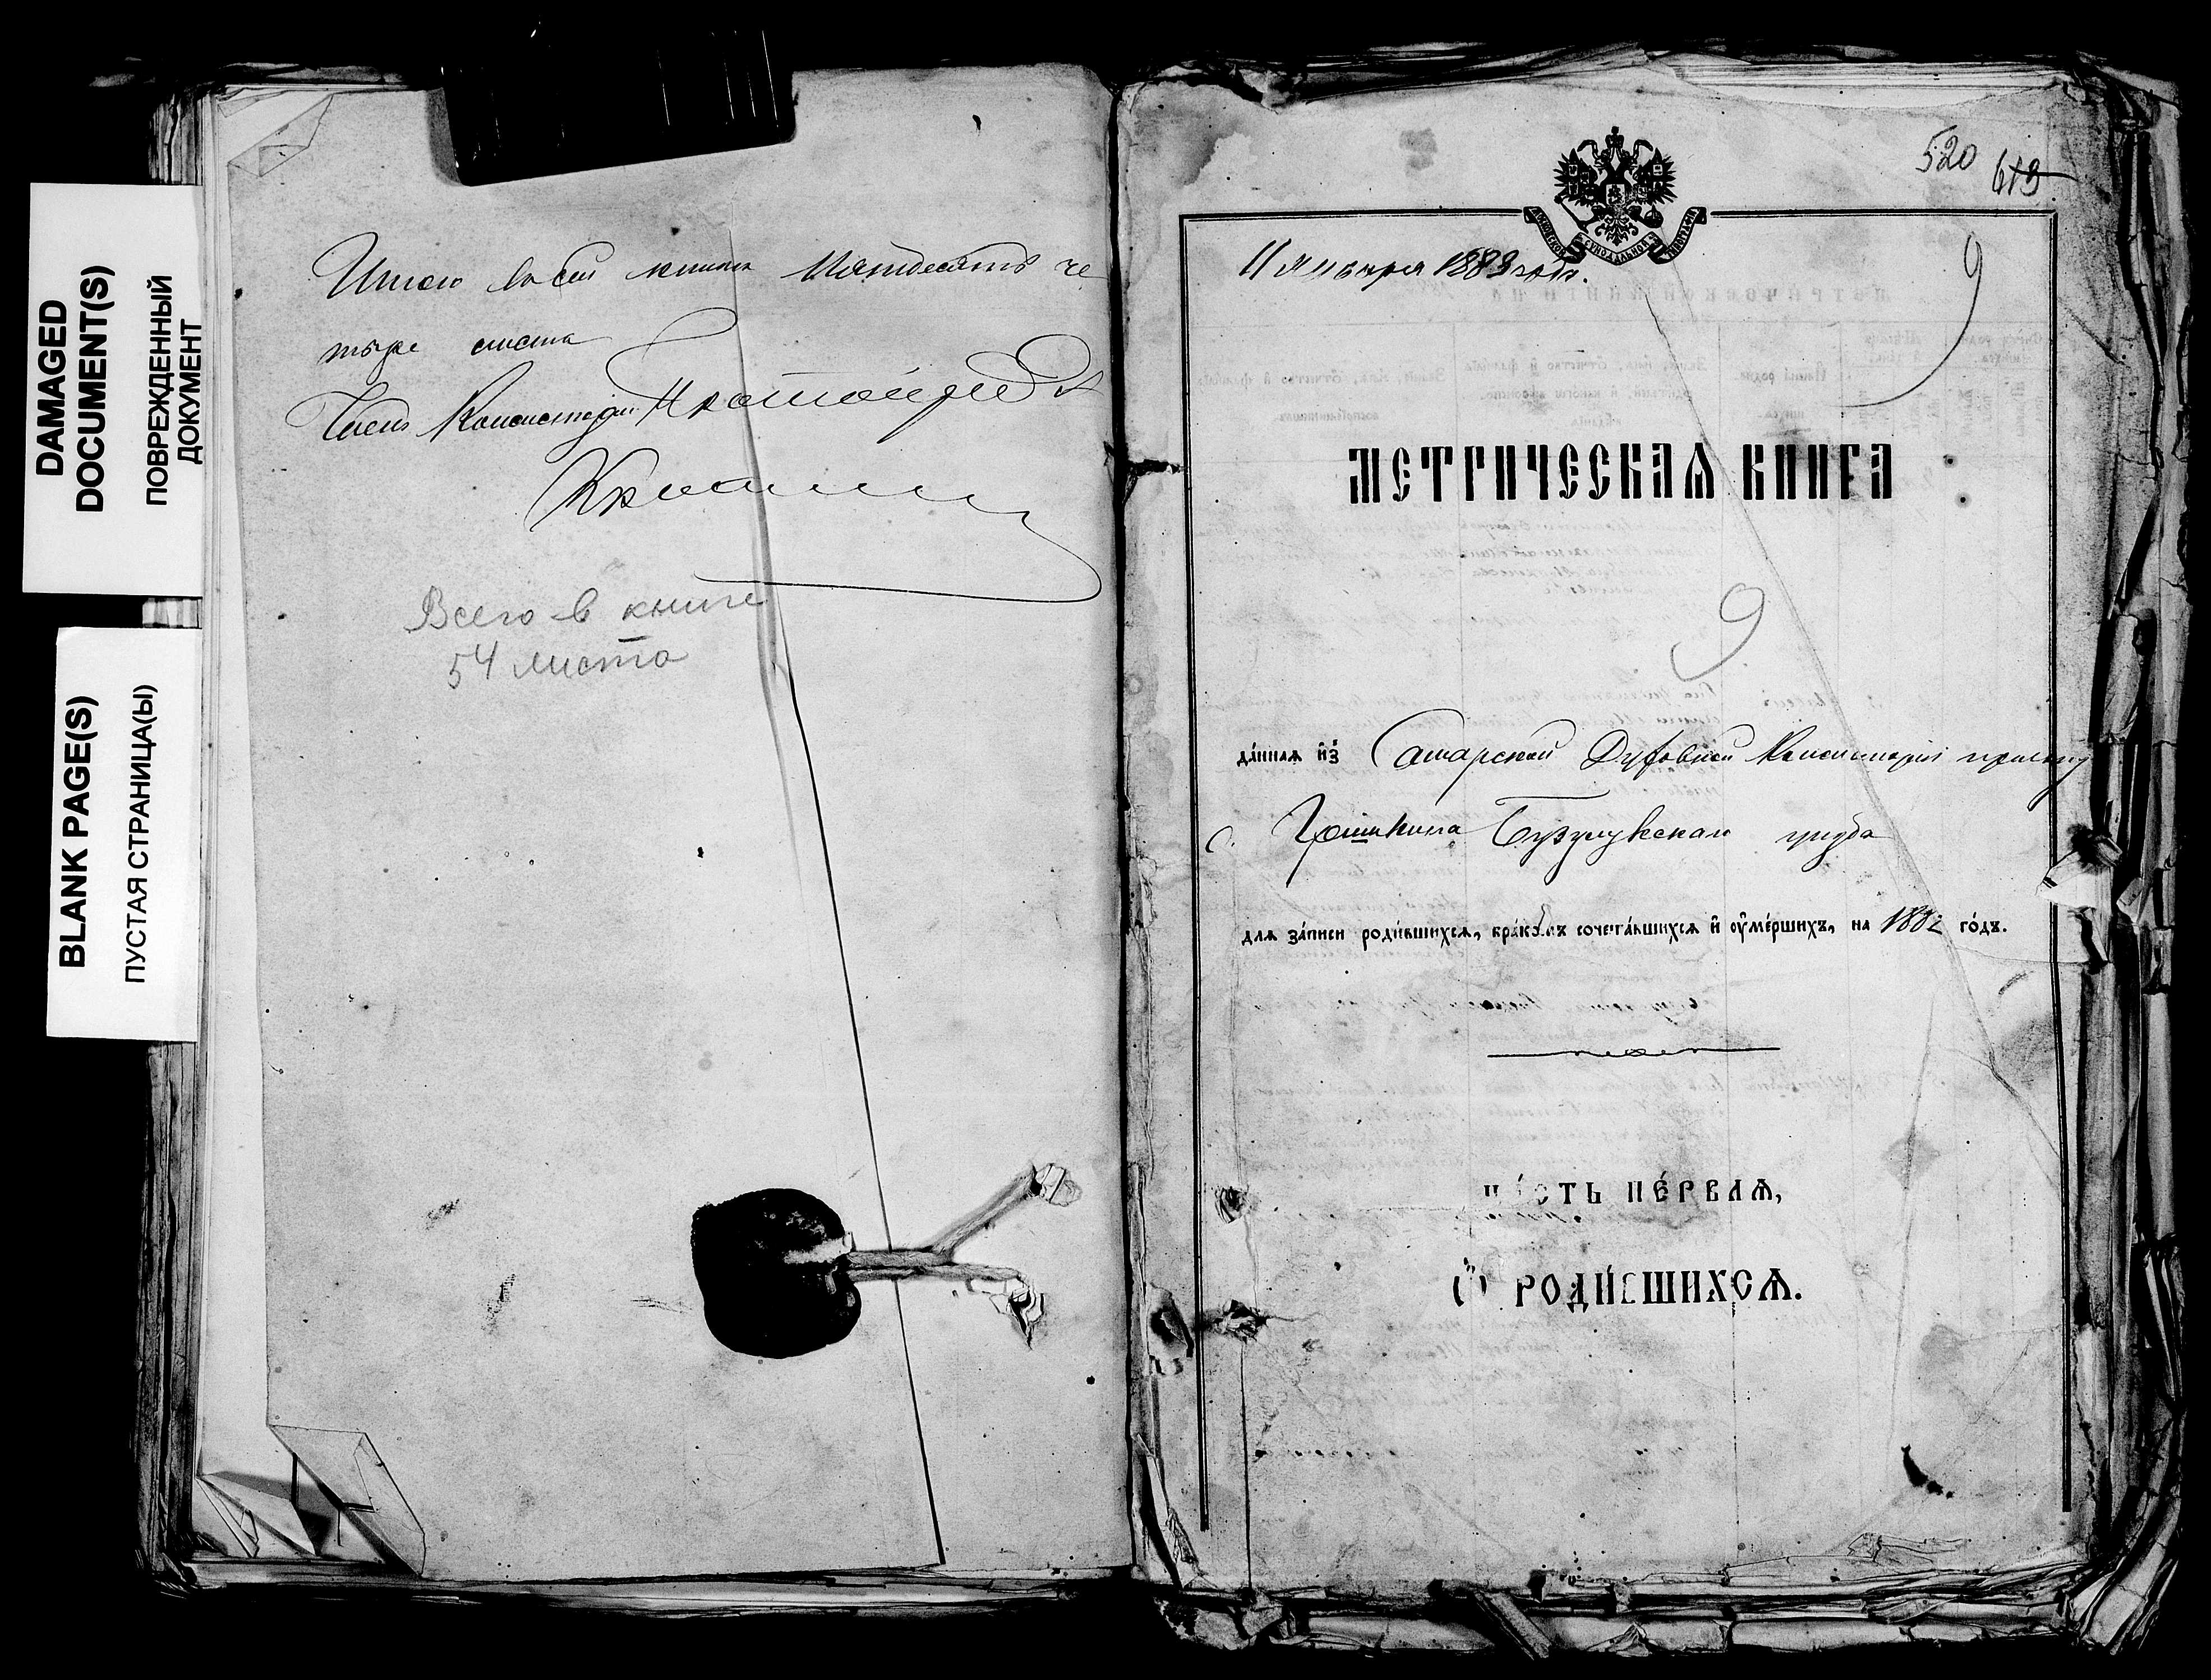 DAMAGED
DOCUMENT(S)
ПОВРЕЖДЕННЫЙ
ДОКУМЕНТ
BLANK PAGE(S)
ПУСТАЯ СТРАНИЦА(Ы)
Итого въ сей книге пятдесятъ че
тыре листа
Членъ Консисторіи Протоіерей
Всего в книге
54 листа
520 619
МОСКОВСКОЙ СѴНОДАЛЬНОЙ ТИПОГРАФІИ
11 Января 1883 года.
9
МЕТРИЧЕСКАѦ КНИГА
9
да́ннаѧ и҆з̾ Самарской Духовной Консисторіи причту
с. Грошкина Бузулукскаго уѣзда
для за́писи роди́вшихсѧ, бра́комъ сочета́вшихсѧ и҆ ᲂу҆ме́ршихъ, на 1882 го́дъ.
ЧА́СТЬ ПЕ́РВАѦ,
Ѡ҆ РОДИ́ВШИХСѦ.